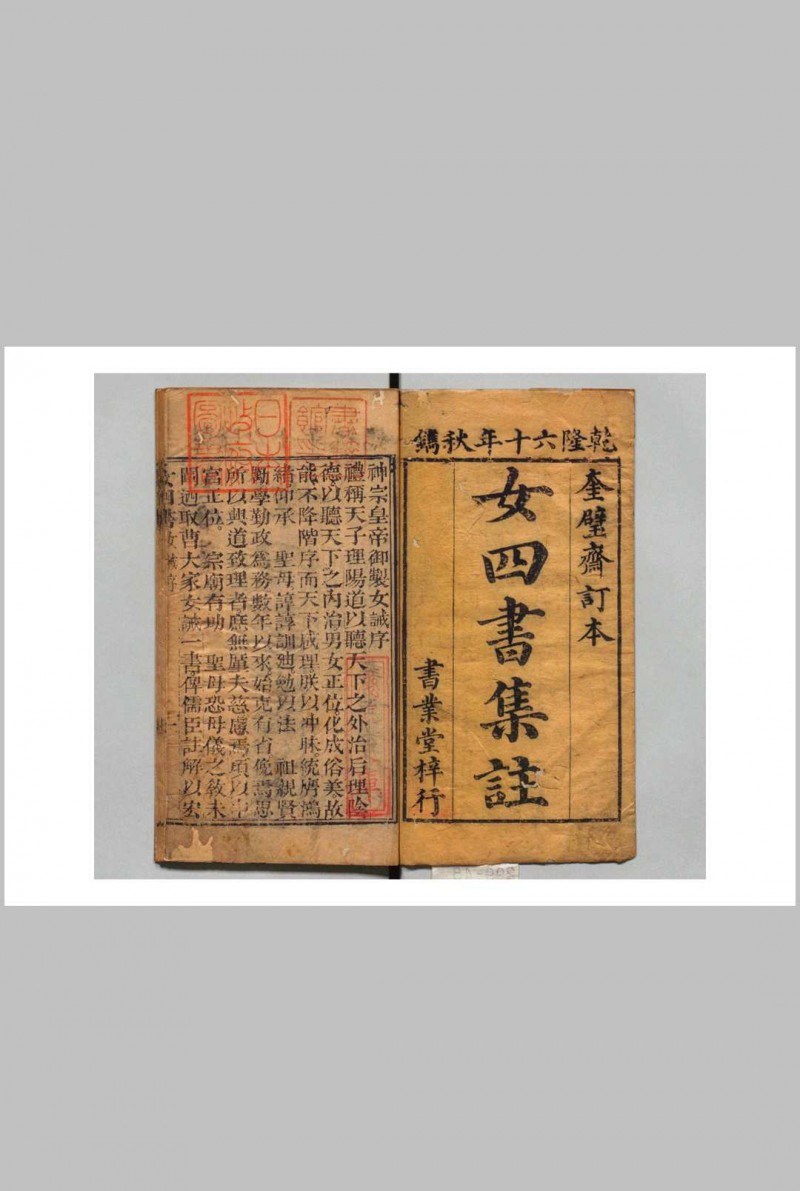 乾隆六十年秋鐫
奎壁齋訂本
女四書集註
書業堂梓行
神宗皇帝御製女誡序
禮稱天子理陽道以聽天下之外治后理陰
德以聽天下之內治男女正位化成俗美故
能不降階序而天下咸理朕以冲昧統膺鴻
緒仰承 聖母諄諄訓廸勉以法 祖親賢
勤學勤政為務數年以來始克有省俛焉思
所以興道致理者庶無負夫慈慮焉頃以中
宮正位 宗廟有功 聖母恐母儀之敎未
閑迺取曹大家女誡一書俾儒臣註解以宏
女四書 女誡序